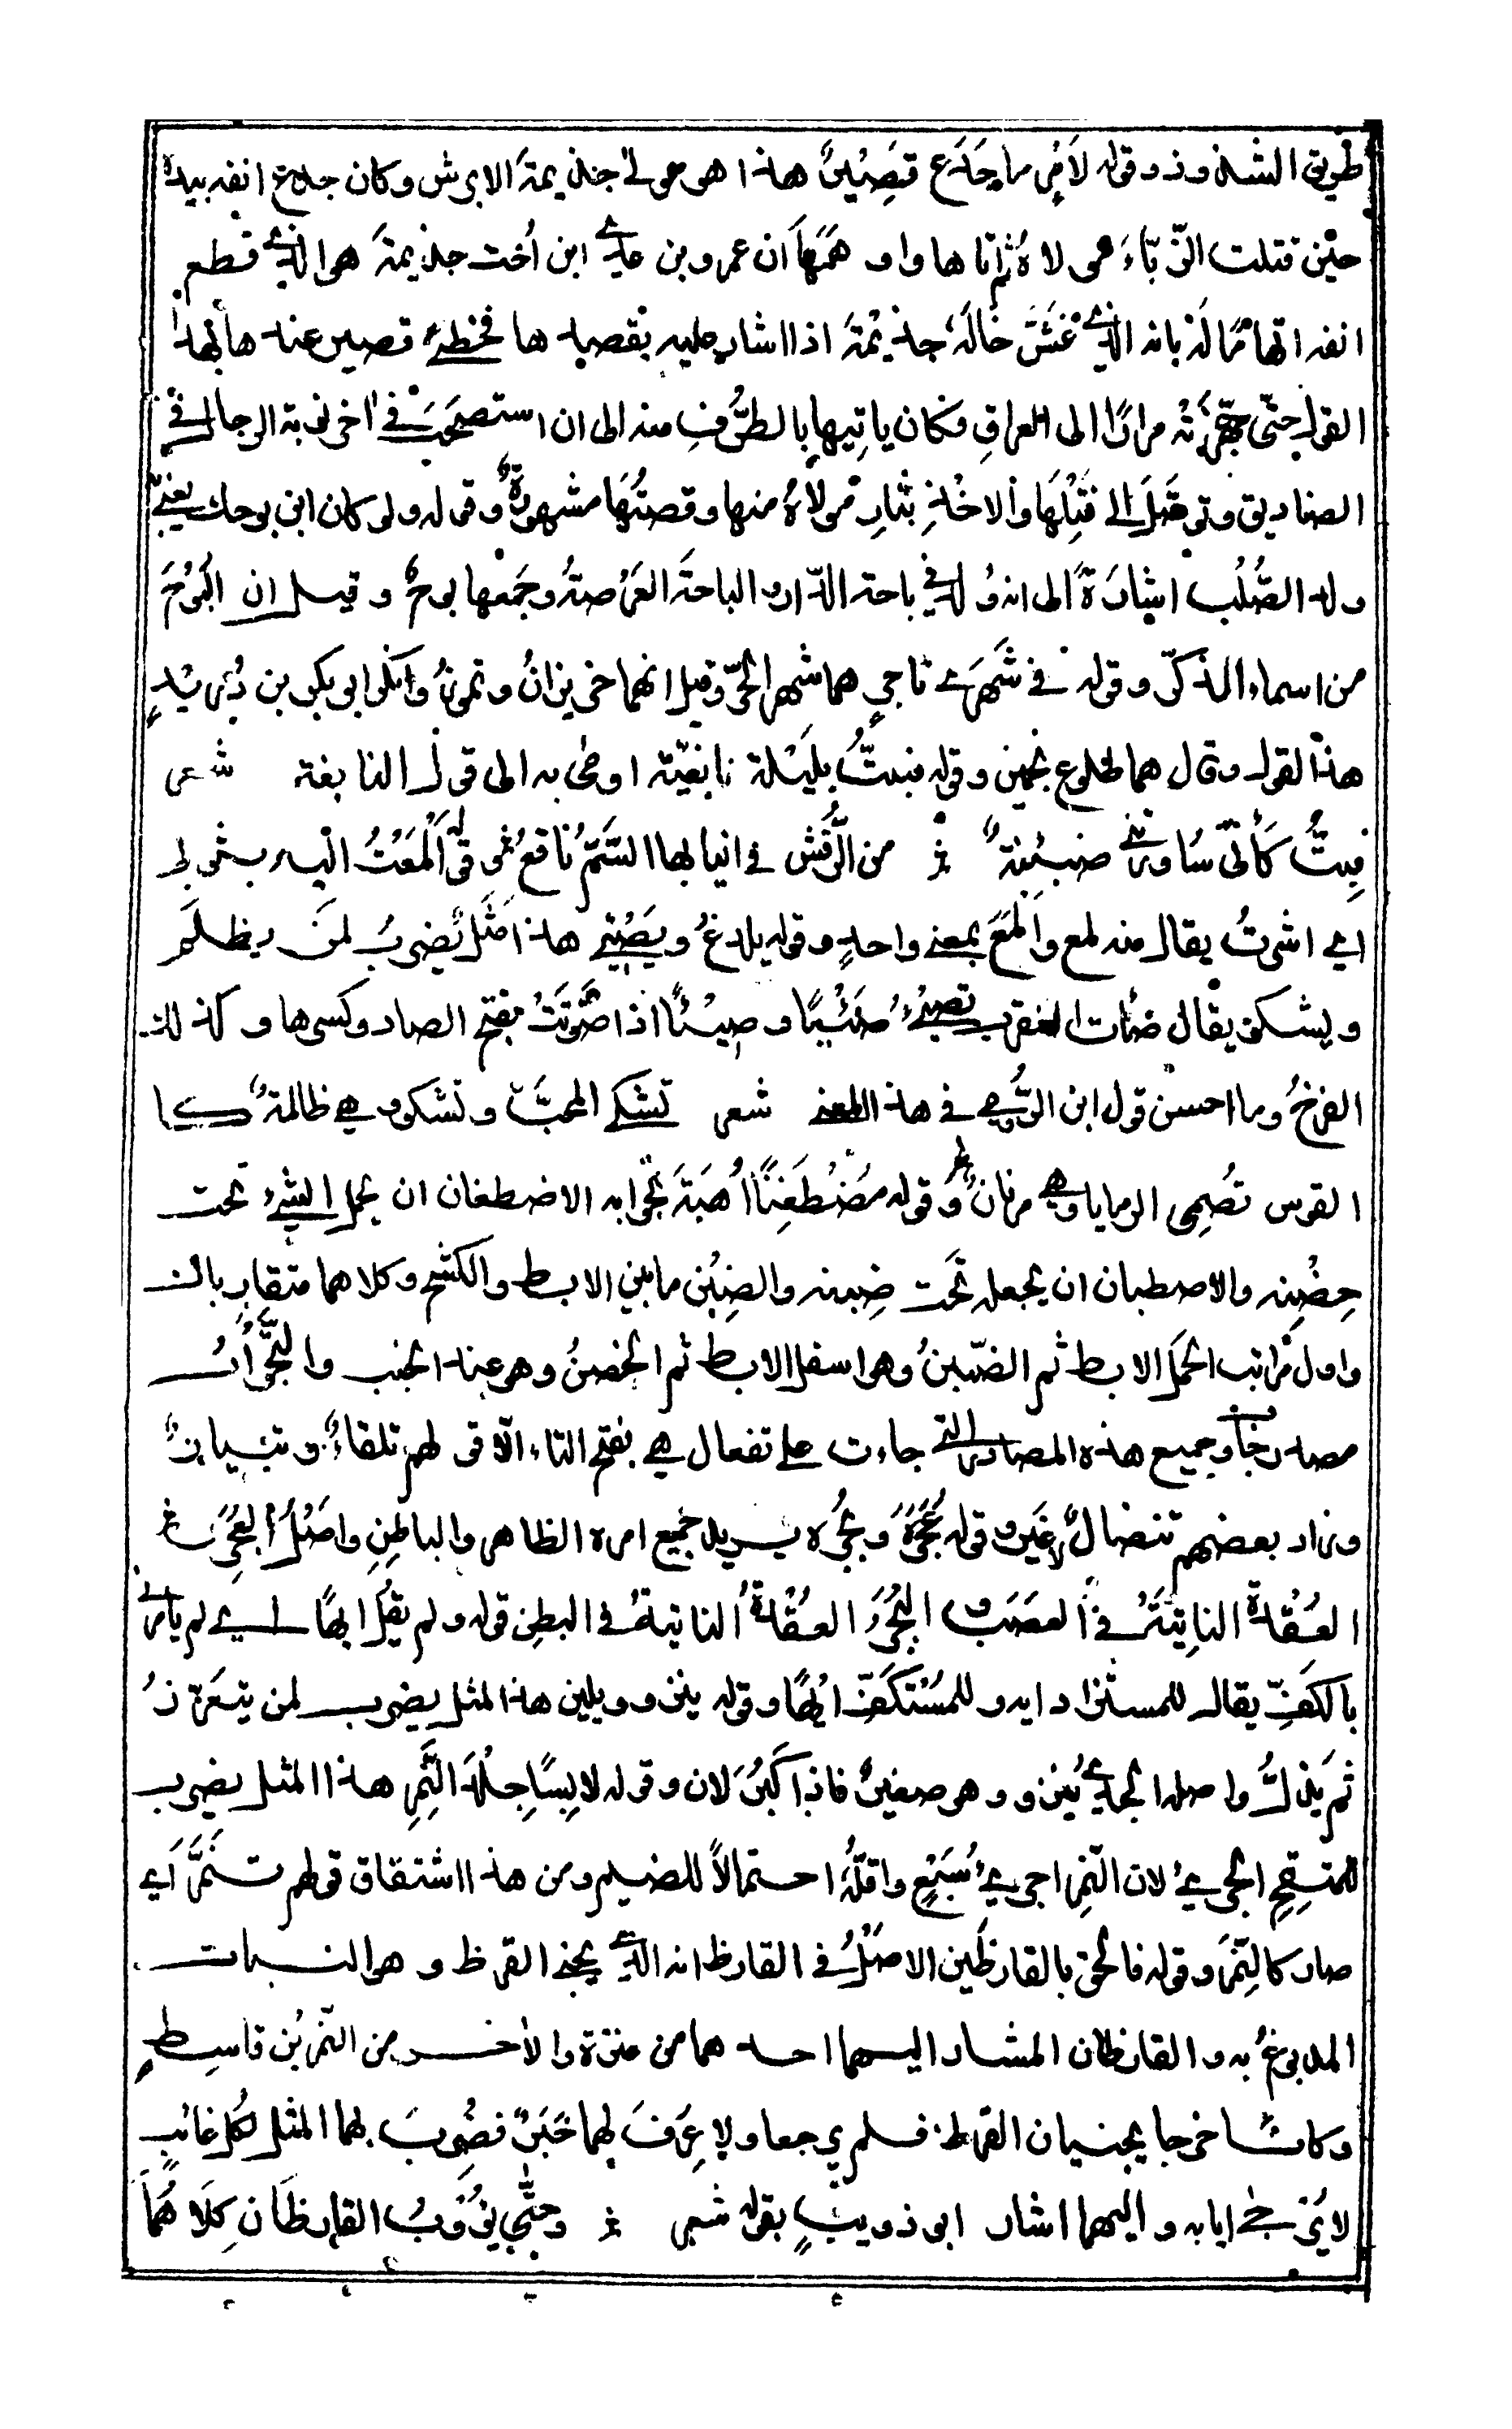 طريق الشذوذ وقوله لأمرٍ ما جَدَع قَصِيرٌ هذا هو مولى جذيمة الابرش وكان جدع انفه بيده
حين قتلت الزّبّاءَ مولاهُ ثم اتاها واوهمَها ان عمرو بن عدي ابن اُخت جذيمة هو الذي قطع
انفه اتهامًا له بانه الذي غَشَّ خالَه جذيمة اذا اشار عليه بقصدها فحظى قصير عندها بهذا
القول حتّى جهّزتْه مرارًا الى العراقِ فكان ياتيها بالطُّرفِ منه الى ان استصحبَ في اخر نوبة الرجال في
الصناديق وتوصّل الى قتلِها والاخذِ بثارِ مولاهُ منها وقصتُها مشهورةٌ وقوله ولو كان ابن بوحك يعني
ولد الصُّلب اشارةً الى انه وُلد في باحة الدّار والباحة العَرْصة وجمعها بوحٌ وقيل ان البُوْحَ
من اسماء الذكرّ وقوله في شَهرَي ناجرٍ هما شهرا الحرّ وقيل انهما حزيرانُ وتموزُ وانكر ابو بكر بن دُريدٍ
هذا القول وقال هما طلوع نجمين وقوله فبتُّ بليلة نابغيّة اومى به الى قول النابغة شعر
فبِتُّ كأنّي ساورتني ضئيلةٌ ؞ من الرُّقش في انيابها السّمّ ناقعُ قوله اَلْمَعْتُ اليه بثوبي
اي اشرتُ يقال منه لمع واَلمعَ بمعنى واحدٍ وقوله يلدغُ ويَصْئِي هذا مَثَلٌ يُضربُ لمَن يظلم
ويشكو يقال صأت العقرب تصئى صَئِيًّا وصِيئًا اذا صَوّتَتْ بفتح الصاد وكسرها وكذلك
الفرخُ وما احسن قول ابن الرُّومي في هذا المعنى شعر تشكى المحبَّ وتشكو وهي ظالمةٌ كا
القوس تُصْمِي الرمايا وهي مرنانٌ وقوله مضْطَغِنًا اُهبَةَ تجوابه الاضطغان ان يحمل الشيء تحت
حِضْنِه والاضطبان ان يجعله تحت ضِبنه والضِبْن ما بين الابط والكشح وكلاهما متقاربان
واول مراتب الحمَل الابط ثم الضّبنُ وهو اسفل الابط ثم الحضنُ وهو عند الجنب والتَّجْوابُ
مصدر جاوَب وجميع هذه المصادر التي جاءت على تفعال هي بفتح التاء الّا قولهم تلقاءٌ وتبيانٌ
وزاد بعضهم تنضالٌ لا غَير وقوله عُجَرَه وبُجَرَه يريد جميع امره الظاهر والباطنِ واصْلُ العُجَرِ
العُقدة الناتِئَة في العصَب والبُجَرُ العُقدةُ الناتِئةُ في البطنِ قوله ولم يقُل اِيْهًا اي لم يأمرني
بالكفِّ يقال للمستزاد ايه وللمُسْتَكَفِّ ايْهًا وقوله ينزو ويلين هذا المثل يضرب لمن يتعزّزُ
ثم يذلُّ واصله الجدي يَنزو وهو صغيرٌ فاذا كبُرَ لان وقوله لابِسًا جِلدَ النّمِر هذا المثل يضرب
للمتوقّح الجري لان النّمِر اجريءُ سَبُعٍ واقلّهُ احتمالاً للضيم ومن هذا اشتقاق قولهم تنمَّرَ اي
صار كالنّمر وقوله فالحق بالقارظَين الاصْلُ في القارظ انه الذي يجني القرظ وهو النبات
المدبوغُ به والقارظان المشار اليهما احدهما من عنزة والاخر من النّمر بْن قاسِطٍ
وكانا خرجا يجنيان القرظ فلم يرجعا ولا عِرَفَ لهما خَبَرٌ فضُربَ بهما المثل لكل غائبٍ
لا يُرْجى ايابه واليهما اشار ابو ذويبٍ بقوله شعر ؞ وحتّى يؤُوبُ القارظانِ كِلَاهُمَا